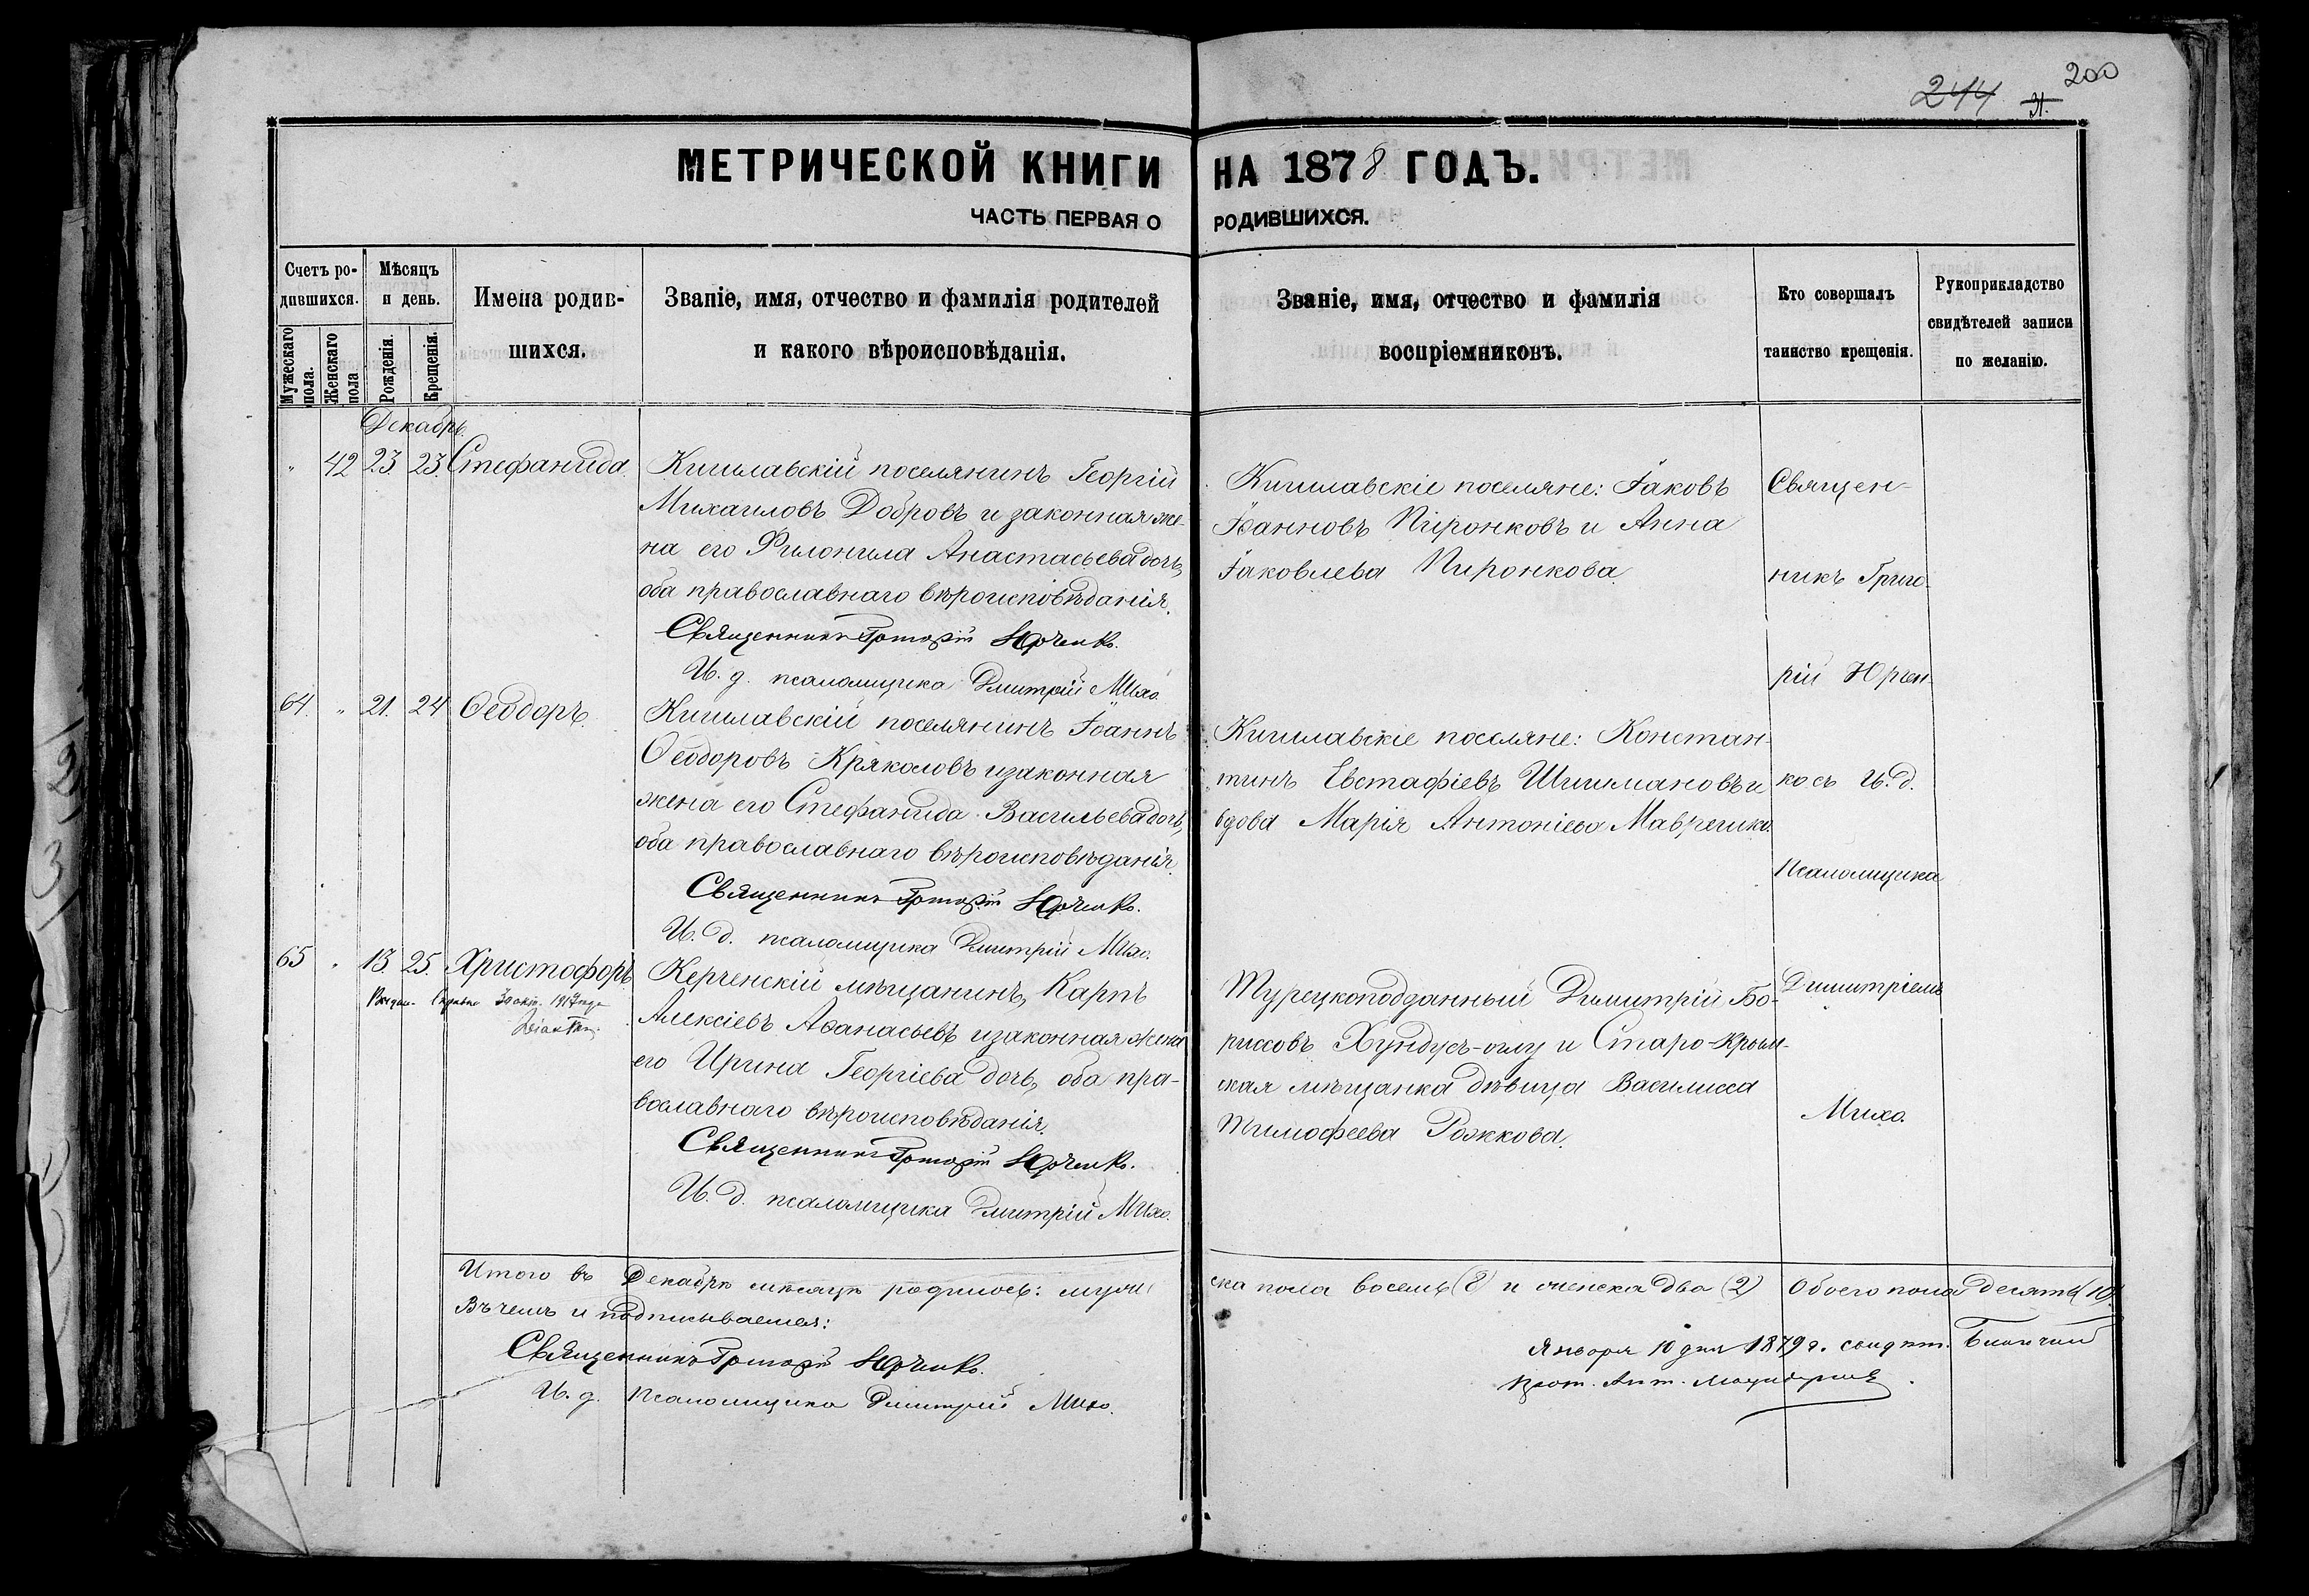 244 200
31.
МЕТРИЧЕСКОЙ КНИГИ НА 1878 ГОДЪ.
ЧАСТЬ ПЕРВАЯ О РОДИВШИХСЯ.
Счетъ ро-
дившихся.
Мужескаго пола.
Женскаго пола
Мѣсяцъ
и день.
Рожденія.
Крещенія.
Имена родив-
шихся.
Званіе, имя, отчество и фамилія родителей
и какого вѣроисповѣданія.
Званіе, имя, отчество и фамилія
воспріемниковъ.
Кто совершалъ
таинство крещенія.
Рукоприкладство
свидѣтелей записи
по желанію.
Декабрь.
" 42 23. 23. Стефанида
Кишлавскій поселянинъ Георгій
Михаиловъ Добровъ и законная же-
на его Филонила Анастасьева дочь,
оба православнаго вѣроисповѣданія.
Священникъ Григорій Юрченко.
И. д. псаломщика Дмитрій Михо.
Кишлавскіе поселяне: Іаковъ
Іоанновъ Пиронковъ и Анна
Іаковлева Пиронкова.
64. " 21. 24 Ѳеодоръ.
Кишлавскій поселянинъ Іоаннъ
Ѳеодоровъ Кряколовъ и законная
жена его Стефанида Васильева дочь,
оба православнаго вѣроисповѣданія.
Священникъ Григорій Юрченко.
И. д. псаломщика Дмитрій Михо.
Кишлавскіе поселяне: Констан-
тинъ Евстафіевъ Шишмановъ и
вдова Марія Антоніева
65 " 13. 25. Христофоръ
30 окт. 1917 года
Керченскій мѣщанинъ, Карпъ
Алексіевъ Аѳанасьевъ и законная жена
его Ирина Георгіева дочь, оба пра-
вославнаго вѣроисповѣданія.
Священникъ Григорій Юрченко.
И. д. псаломщика Дмитрій Михо.
Турецкоподданный Димитрій Бо-
риссовъ Хундусъ-оглу и Старо-Крым-
ская мѣщанка дѣвица Василисса
Тимофеева Рожкова.
Священ-
никъ Григо-
рій Юрчен-
ко съ И. д.
псаломщика
Димитріемъ
Михо.
Итого въ Декабрѣ мѣсяцѣ родилось: муже
ска пола восемь (8) и женска два (2) Обоего пола десять (10).
Въ чемъ и подписываемся:
Священникъ Григорій Юрченко.
И. д. Псаломщика Дмитрій Михо.
Января 10 дня 1879 г.
Прот. Ант.